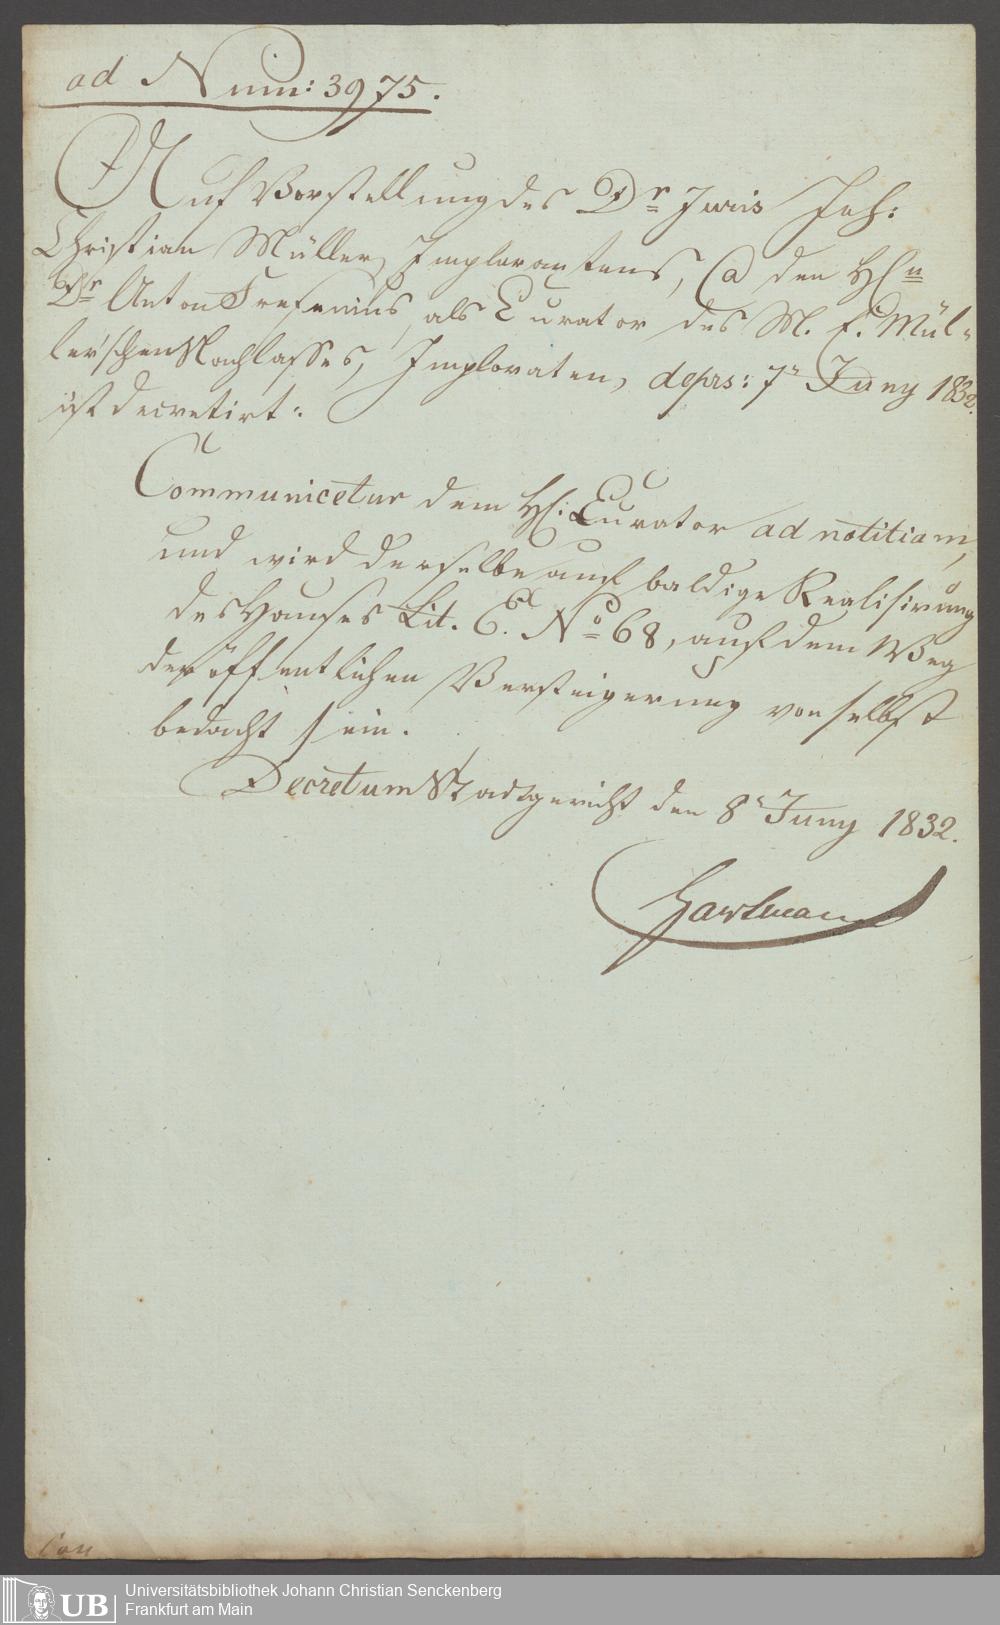 ad Num: 3975.
Auf Vorstellung des Dr Juris Joh:
Christian Müller, Imploranten, Ca den Hn
Dr Anton Fresenius, als Curator des M. E. Mül-
ler'schen Nachlasses, Imploraten, de prs: 7n Juny 1832.
ist decretirt:
Communicetur dem H: Curator ad notitiam,
und wird derselbe auf baldige Realisirung
des Hauses Lit. E. No 68, auf dem Weg
der öffentlichen Versteigerung von selbst
bedacht sein.
Decretum Stadtgericht den 8n Juny 1832.
Hartmann
Universitätsbibliothek Johann Christian Senckenberg
Frankfurt am Main
UB